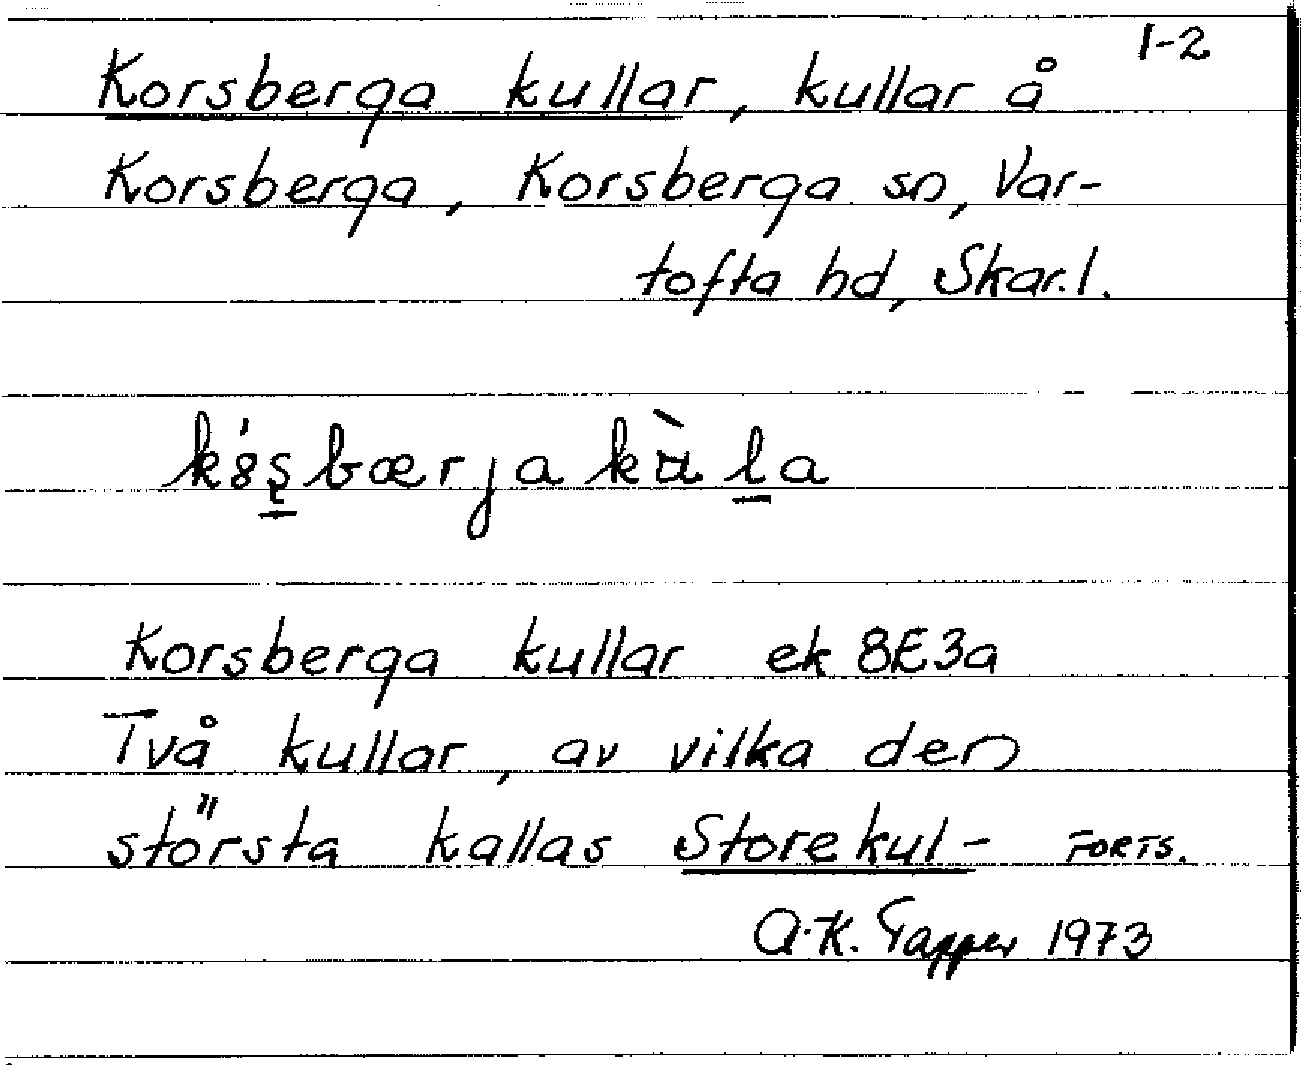 1-2
Korsberga kullar, kullar å
Korsberga, Korsberga sn, Var-
tofta hd, Skar.l.
Korsberga kullar ek 8E3a
Två kullar, av vilka den
största kallas Storekul- FORTS.
A.K. Tapper 1973